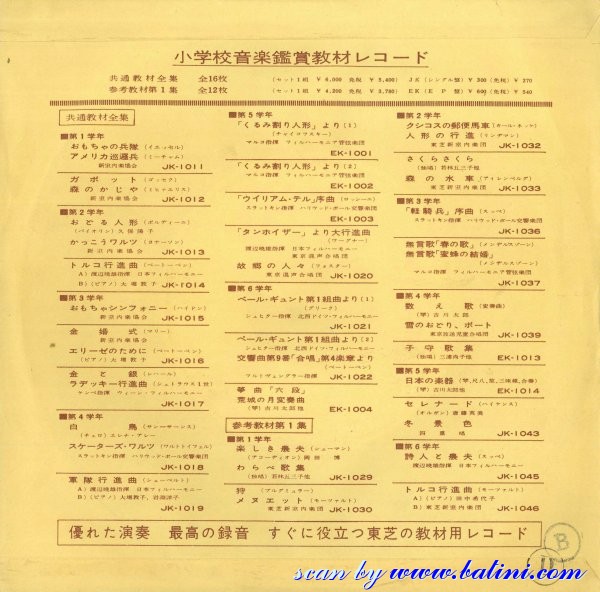 小学校音楽鑑賞教材レコード
共通教材全集 全16枚 (セット1組 ￥6,000 免税 ￥5,400) JK(シングル盤)￥300(免税)￥270
参考教材第1集 全12枚 (セット1組 ￥4,200 免税 ￥3,780) EK(EP盤)￥600(免税)￥540
共通教材全集
■第1学年
おもちゃの兵隊(イェッセル)
アメリカ巡邏兵(ミーチャム)
新室内楽協会 JK-1011
ガボット(ゴセック)
森のかじや(ミヒャエリス)
新室内楽協会 JK-1012
■第2学年
おどる人形(ポルディーニ)
(バイオリン)久保陽子
かっこうワルツ(ヨナーソン)
新室内楽協会 JK-1013
トルコ行進曲(ベートーベン)
A)渡辺暁雄指揮 日本フィルハーモニー
B)(ピアノ)大堀敦子 JK-1014
■第3学年
おもちゃシンフォニー(ハイドン)
新室内楽協会 JK-1015
金婚式(マリー)
新室内楽協会
エリーゼのために(ベートーベン)
(ピアノ)大堀敦子 JK-1016
金と銀(レハール)
ラデッキー行進曲(シュトラウス1世)
ケンペ指揮 ウィーン・フィルハーモニー
JK-1017
■第4学年
白鳥(サン=サーンス)
(チェロ)エレナ・アレー
スケーターズ・ワルツ(ワルトトイフェル)
スラットキン指揮 ハリウッド・ボール交響楽団
JK-1018
軍隊行進曲(シューベルト)
A)渡辺暁雄指揮 日本フィルハーモニー
B)(ピアノ)大堀敦子、岩淵洋子
JK-1019
■第5学年
「くるみ割り人形」より(1)
(チャイコフスキー)
マルコ指揮 フィルハーモニア管弦楽団
EK-1001
「くるみ割り人形」より(2)
マルコ指揮 フィルハーモニア管弦楽団
EK-1002
「ウイリアム・テル」序曲(ロッシーニ)
スラットキン指揮 ハリウッド・ボール交響楽団
EK-1003
「タンホイザー」より大行進曲
(ワーグナー)
渡辺暁雄指揮 日本フィルハーモニー
東京混声合唱団
故郷の人々(フォスター)
東京混声合唱団 JK-1020
■第6学年
ペール・ギュント第1組曲より(1)
(グリーク)
シュヒター指揮 北西ドイツ・フィルハーモニー
JK-1021
ペール・ギュント第1組曲より(2)
シュヒター指揮 北西ドイツ・フィルハーモニー
交響曲第9番「合唱」第4楽章より
(ベートーベン)
フルトヴェングラー指揮 JK-1022
箏曲「六段」
荒城の月変奏曲
(箏)古川太郎他 EK-1004
参考教材第1集
■第1学年
楽しき農夫(シューマン)
(アコーディオン)岡田博
わらべ歌集
(独唱)若林五三子他 JK-1029
狩(ブルグミュラー)
メヌエット(モーツァルト)
東芝新室内楽団 JK-1030
■第2学年
クシコスの郵便馬車(ネッケ)
人形の行進(リンデマン)
東芝新室内楽団 JK-1032
さくらさくら
(独唱)若林五三子他
森の水車(アイレンベルグ)
東芝新室内楽団 JK-1033
■第3学年
「軽騎兵」序曲(スッペ)
スラットキン指揮 ハリウッド・ボール交響楽団
JK-1036
無言歌「春の歌」(メンデルスゾーン)
無言歌「蜜蜂の結婚」
(メンデルスゾーン)
マルコ指揮 フィルハーモニア管弦楽団
JK-1037
■第4学年
数え歌(変奏曲)
(箏)古川太郎
雪のおどり、ボート
東京放送児童合唱団 JK-1039
子守歌集
(独唱)三浦尚子他 EK-1013
■第5学年
日本の楽器(箏、尺八、笛、三味線、合奏)
(箏)古川太郎他 EK-1014
セレナード(ハイケンス)
(オルガン)斎藤英美
冬景色
JK-1043
■第6学年
詩人と農夫(スッペ)
渡辺暁雄指揮 日本フィルハーモニー
JK-1045
トルコ行進曲(モーツァルト)
A)(ピアノ)田中希代子
B)東芝新室内楽団 JK-1046
優れた演奏 最高の録音 すぐに役立つ東芝の教材用レコード
B
scan by www.batini.com